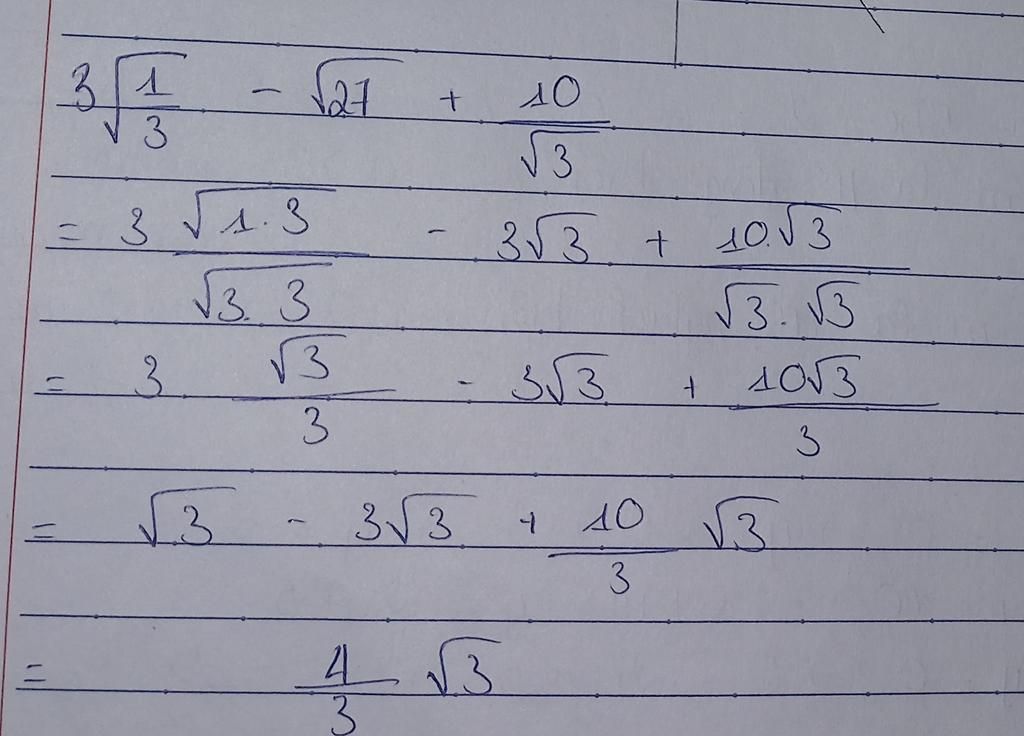 3√(1/3) - √27 + 10/√3
= 3 √(1.3)/√(3.3) - 3√3 + 10.√3/(√3.√3)
= 3 √3/3 - 3√3 + 10√3/3
= √3 - 3√3 + 10/3 √3
= 4/3 √3